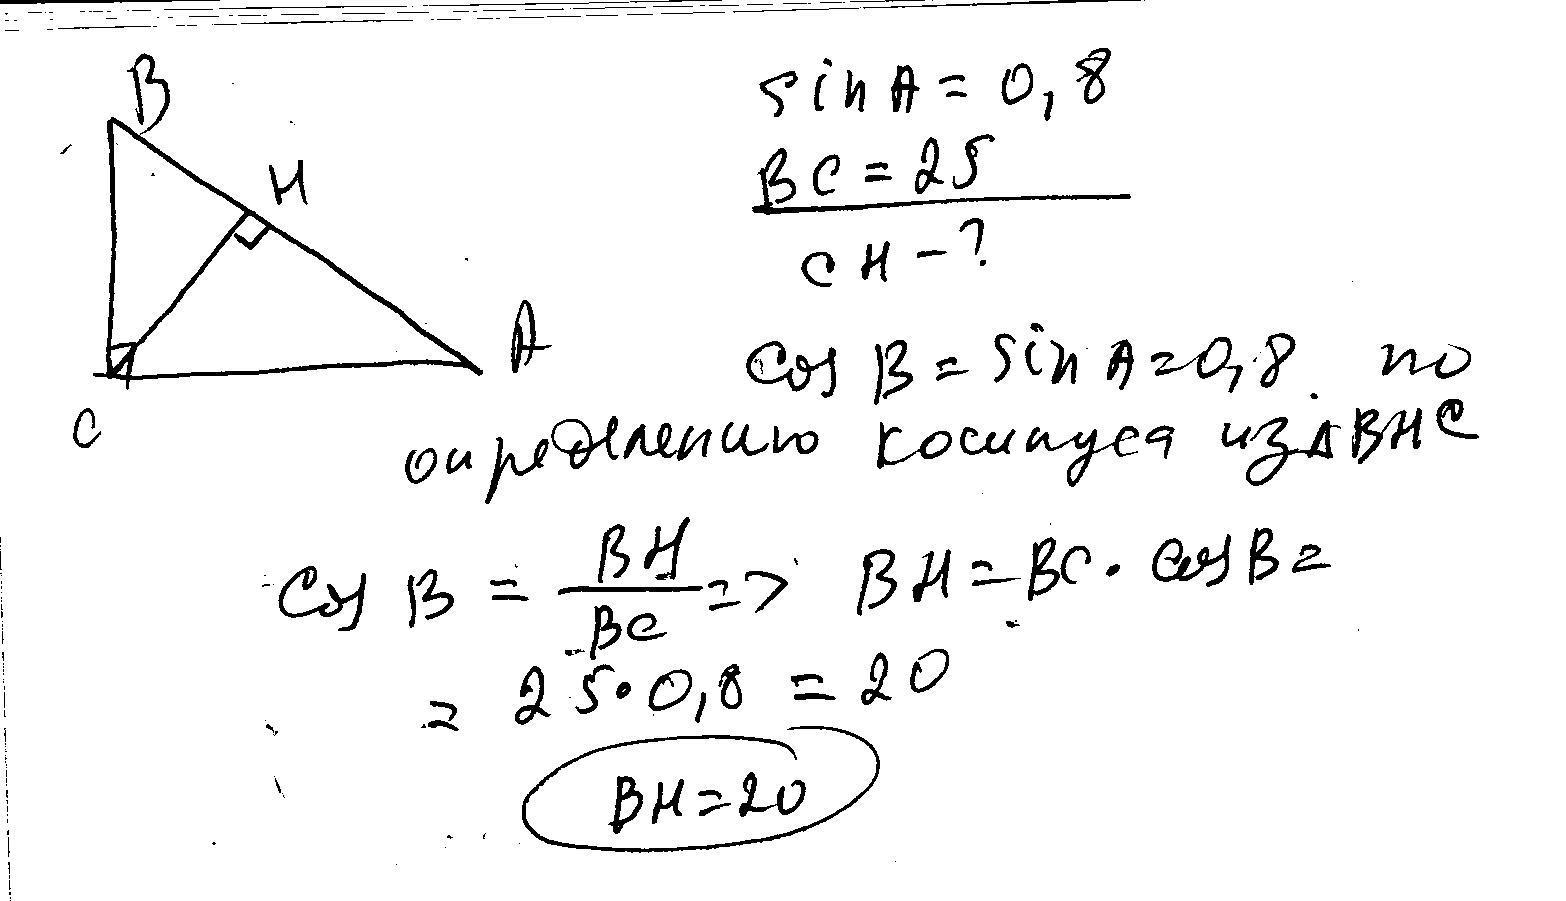 B
H
A
C
sin A = 0,8
BC = 25
CH - ?
cos B = sin A = 0,8. по
определению косинуса из ΔBHC
cos B = BH/BC => BH = BC · cos B =
= 25 · 0,8 = 20
BH = 20